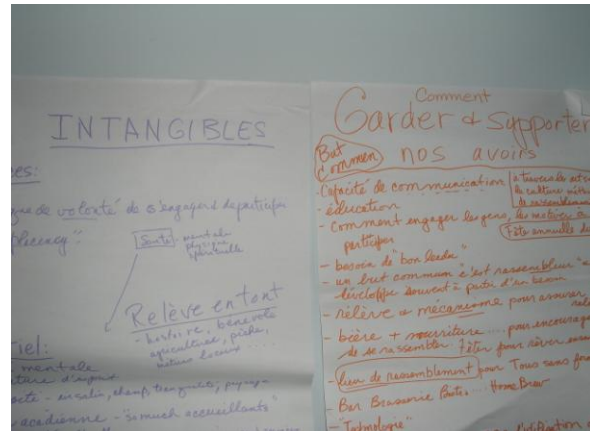 INTANGIBLES
es:
que de volonté de s'engager & de participer
Santé - mentale
physique
spirituelle
Relève en tout
- histoire, bénévole
agriculture, pêche,
métiers locaux ....
iel:
mentale
- air salin, champ, tranquilité, paysage
acadienne - "so much accueillants"
Comment
Garder & Supporter
nos avoirs
But
Commun
- Capacité de communication
à travers le
la culture
de rassemblement
- éducation
- Comment engager les gens, les motiver
participer
Fête annuelle
- besoin de "bon leader"
- un but commun c'est rassembleur
développe souvent à partir d'un besoin
- rélève & mécanisme pour assurer
- bière + nourriture ... pour encourager
de se rassembler. Fêter pour rêver
- lieu de rassemblement pour Tous sans
- Bar Brasserie ... Home Brew
- "Technologie"